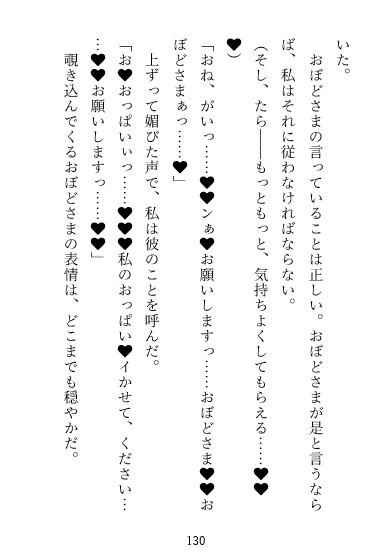 いた。
　おぼどさまの言っていることは正しい。おぼどさまが是と言うなら
ば、私はそれに従わなければならない。
（そし、たら――もっともっと、気持ちよくしてもらえる……♥♥
♥）
「おね、がいっ……♥♥ンぁ♥お願いしますっ……おぼどさま♥♥お
ぼどさまぁっ……♥」
　上ずって媚びた声で、私は彼のことを呼んだ。
「お♥おっぱいぃっ……♥♥♥私のおっぱい♥イかせて、ください…
…♥♥お願いしますっ……♥♥」
　覗き込んでくるおぼどさまの表情は、どこまでも穏やかだ。
130